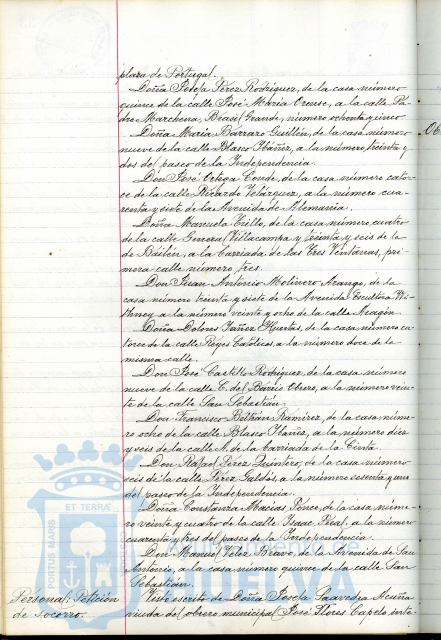 plaza de Portugal.
Doña Josefa Pérez Rodríguez, de la casa número
quince de la calle José María Orense, a la calle Pa-
dre Marchena, Bocaú Grande, número ochenta y cinco.
Doña María Barraro Guillén, de la casa número
nueve de la calle Blasco Ibáñez, a la número treinta y
dos del paseo de la Independencia.
Don José Ortega Conde, de la casa número cator-
ce de la calle Ricardo Velázquez, a la número cua-
renta y siete de la Avenida de Alemania.
Doña Manuela Trillo, de la casa número cuatro
de la calle General Villacampa y treinta y seis de la
de Bailén, a la Barriada de las Tres Ventanas, pri-
mera calle número tres.
Don Juan Antonio Molinero Arango, de la
casa número treinta y siete de la Avenida Escultora Wi-
thney a la número veinte y ocho de la calle Aragón.
Doña Dolores Yañez Huertas, de la casa número ca-
torce de la calle Reyes Católicos, a la número doce de la
misma calle.
Don José Castillo Rodríguez, de la casa número
nueve de la calle C. del Barrio Obrero, a la número vein-
te de la calle San Sebastián.
Don Francisco Beltrán Ramírez, de la casa núme-
ro ocho de la calle Blasco Ibáñez, a la número diez
y seis de la calle A. de la barriada de la Cinta.
Don Rafael Pérez Quintero, de la casa número
seis de la calle Pérez Galdós, a la número sesenta y uno
del paseo de la Independencia.
Doña Constanza Macías Ponce, de la casa núme-
ro veinte y cuatro de la calle Isaac Peral, a la número
cuarenta y tres del paseo de la Independencia.
Don Manuel Vélez Bravo, de la Avenida de San
Antonio, a la casa número quince de la calle San
Sebastián.
Personal: Petición
de socorro.
Visto escrito de Doña Josefa Saavedra Acuña
viuda del obrero municipal José Flores Capelo inte-
06
ET TERRÆ
PORTUS MARIS
HUELVA